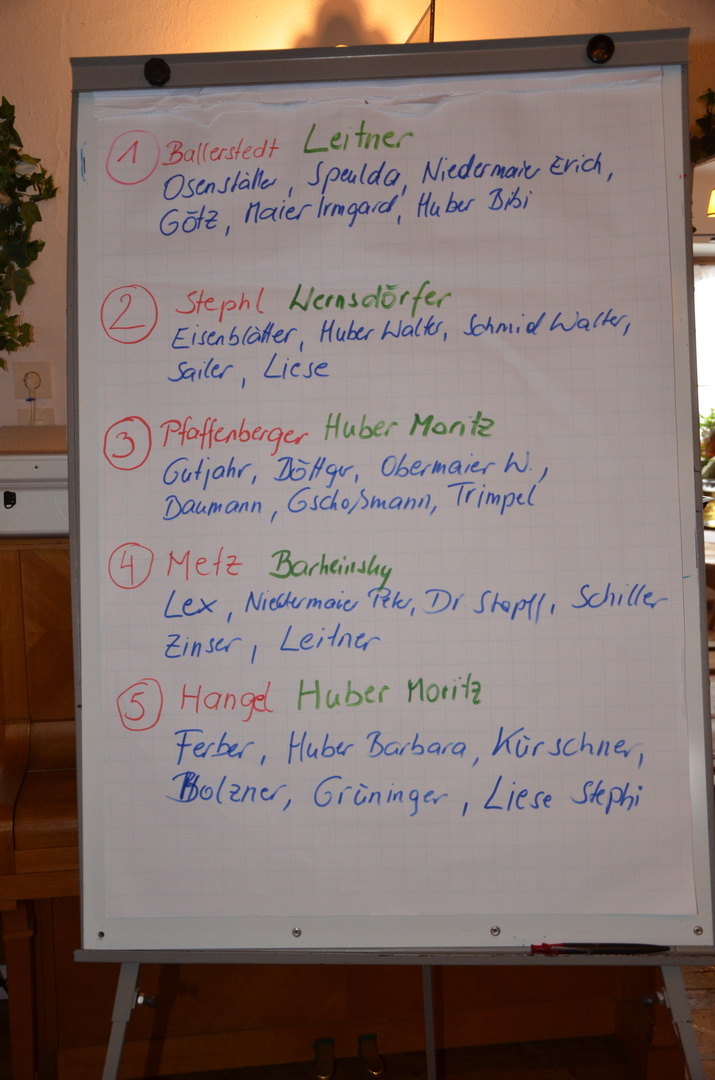 1 Ballerstedt Leitner
Osenstätter, Speulda, Niedermaier Erich,
Götz, Maier Irmgard, Huber Bibi
2 Stephl Wernsdörfer
Eisenblätter, Huber Walter, Schmid Walter,
Sailer, Liese
3 Pfaffenberger Huber Moritz
Gutjahr, Böttger, Obermaier W.,
Daumann, Gschoßmann, Trimpel
4 Metz Barheinsky
Lex, Niedermaier Peter, Dr Stapff, Schiller
Zinser, Leitner
5 Hangl Huber Moritz
Ferber, Huber Barbara, Kürschner,
Bolzner, Grüninger, Liese Stephi